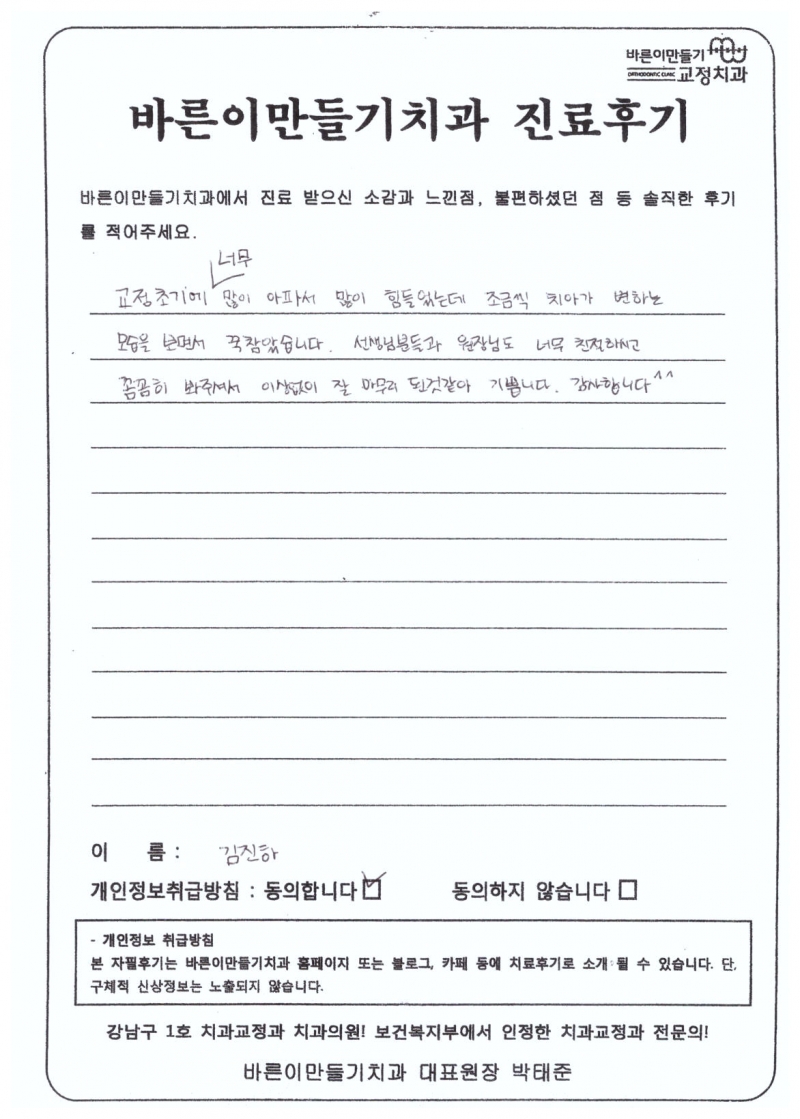 바른이만들기
ORTHODONTIC CLINIC 교정치과
바른이만들기치과 진료후기
바른이만들기치과에서 진료 받으신 소감과 느낀점, 불편하셨던 점 등 솔직한 후기
를 적어주세요.
너무
교정초기에 많이 아파서 많이 힘들었는데 조금씩 치아가 변하는
모습을 보면서 꾹참았습니다. 선생님분들과 원장님도 너무 친절하시고
꼼꼼히 봐주셔서 이상없이 잘 마무리 된것같아 기쁩니다. 감사합니다^^
이 름 : 김진하
개인정보취급방침 : 동의합니다 동의하지 않습니다
- 개인정보 취급방침
본 자필후기는 바른이만들기치과 홈페이지 또는 블로그, 카페 등에 치료후기로 소개 될 수 있습니다. 단,
구체적 신상정보는 노출되지 않습니다.
강남구 1호 치과교정과 치과의원! 보건복지부에서 인정한 치과교정과 전문의!
바른이만들기치과 대표원장 박태준